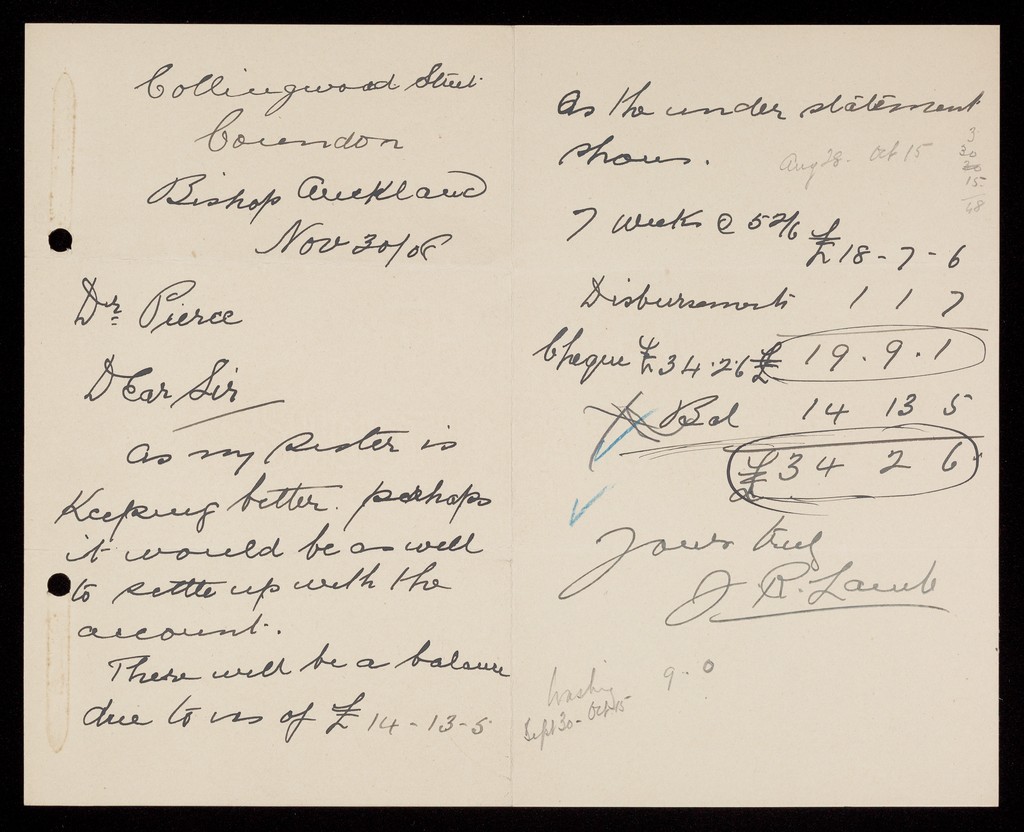 Collingwood Street
Coundon
Bishop Auckland
Nov 30/08
Dr Pierce
Dear Sir
as my sister is
Keeping better. perhaps
it would be as well
to settle up with the
account.
There will be a balance
due to us of £14-13-5
as the under statement
shows.
Aug 28. Oct 15
3
30
30
15
48
7 weeks @ 52/6 £18-7-6
Disbursements 1 1 7
Cheque £34.2.6 £ 19.9.1
Bal 14 13 5
£34 2 6
Yours truly
J. R. Lamb
Washing 9-0
Sept 30-Oct 15